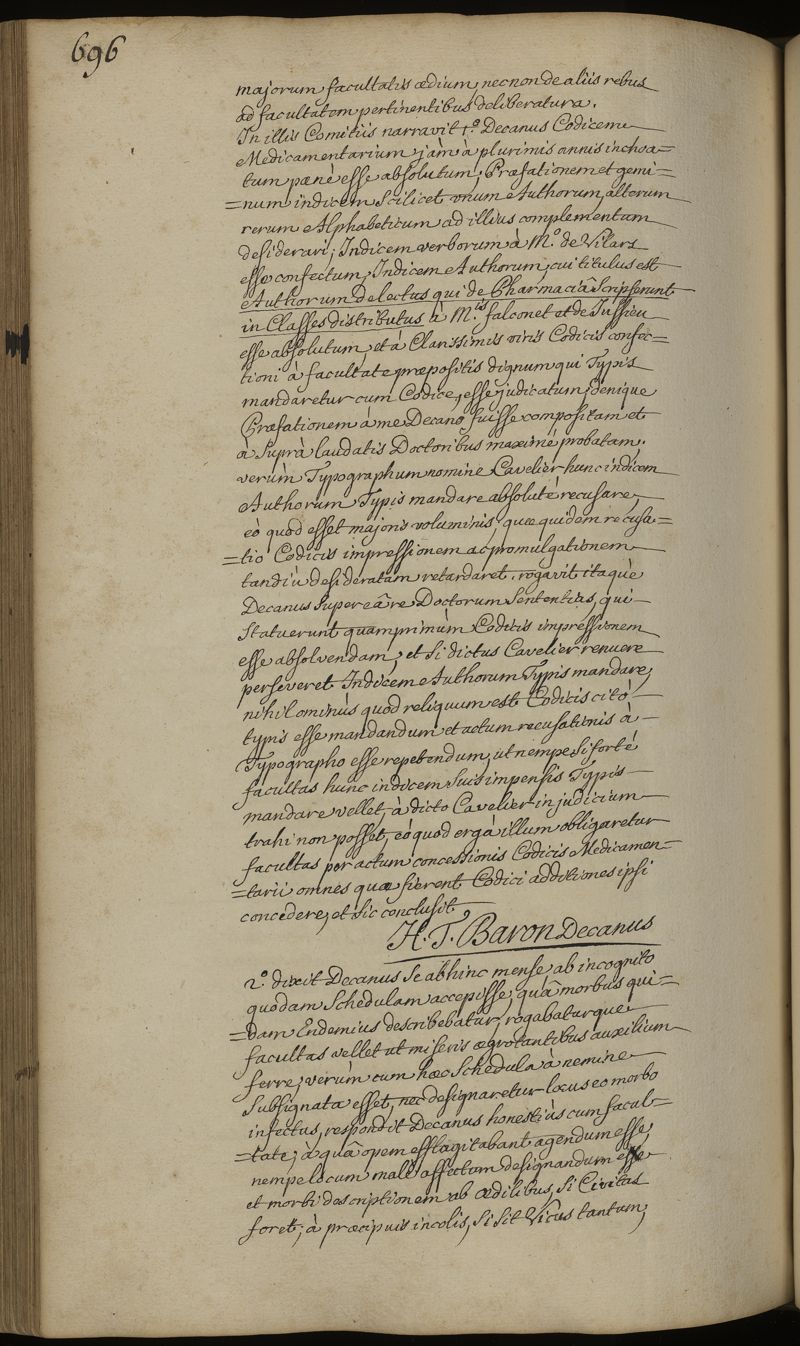 696
majorum facultatis ædium, nec non de aliis rebus
ad facultatem pertinentibus deliberatura.
In illis Comitiis narravit 1.º Decanus Codicem
Medicamentarium jàm à plurimis annis inchoa=
tum pænè esse absolutum; Præfationem et gemi=
=num indicem scilicet unum Authorum, alterum
rerum Alphabeticum ad illius complementum
desiderari; Indicem verborum à M.º de Vilars
esse confectum, Indicem Authorum, cui titulus est
Authorum Delectus qui de Pharmaciâ Scripserunt
in Classes distributus à M.is falconet et de Jussieu
esse absolutum, et à Clarissimis viris Codicis confec=
tioni à facultate præpositis dignum qui Typis
mandaretur cum Codice, esse judicatum, denique
Præfationem à me Decano fuisse compositam et
à Suprà laudatis Doctoribus maximè probatam.
verùm Typographum nomine Cavelier hunc indicem
Authorum Typis mandare absolutè recusare,
eò quod esset majoris voluminis, quæ quidem recusa=
=tio Codicis impressionem ac promulgationem
tandiù desideratam retardaret. rogavit itaque
Decanus super eâ re Doctorum Sententias, qui
Statuerunt quamprimùm Codicis impressionem
esse absolvendam, et si dictus Cavelier renuere
perseveret Indicem Authorum Typis mandare,
nihilominùs quod reliquum est Codicis citò
typis esse mandandum et actum recusationis à
Typographo esse repetendum, ut nempe si fortè
facultas hunc indicem suis impensis Typis
mandare vellet, à dicto Cavelier in judicium
trahi non posset, eò quod ergà illum obligaretur
facultas per actum concessionis Codicis Medicamen=
=tarii omnes quæ fierent Codici additiones ipsi
concedere, et sic conclusit
H. T. Baron Decanus
2.º dixit Decanus Se abhinc mense ab incognito
quodam Schedulam accepisse, quâ morbus qui=
=dam Endemius describebatur, rogabaturque
facultas vellet ut miseris ægrotantibus auxilium
ferre, verùm cum hæc Schedula à nemine
Subsignata esset, nec designaretur locus eo morbo
infectus, respondit Decanus honestiùs cum facul=
=tate, à quâ opem efflagitabant agendum esse,
nempe locum malè affectum designandum esse
et morbi descriptionem ab ædilibus, si Civitas
foret, à præcipuis incolis, si sit Vicus tantum,